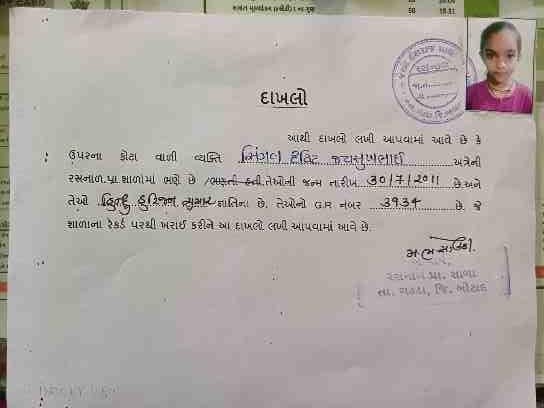 દાખલો
આથી દાખલો લખી આપવામાં આવે છે કે
ઉપરના ફોટા વાળી વ્યક્તિ સિંગલ જયસુખભાઈ અત્રેની
રસનાળ.પ્રા.શાળામાં ભણે છે /ભણતી હતી.તેઓની જન્મ તારીખ 30/7/2011 છે.અને
તેઓ હિન્દુ જ્ઞાતિના છે. તેઓનો G.R નંબર 3934 છે. જે
શાળાના રેકર્ડ પરથી ખરાઈ કરીને આ દાખલો લખી આપવામાં આવે છે.
રસનાળ પ્રા. શાળા
તા. ગઢડા, જિ. બોટાદ